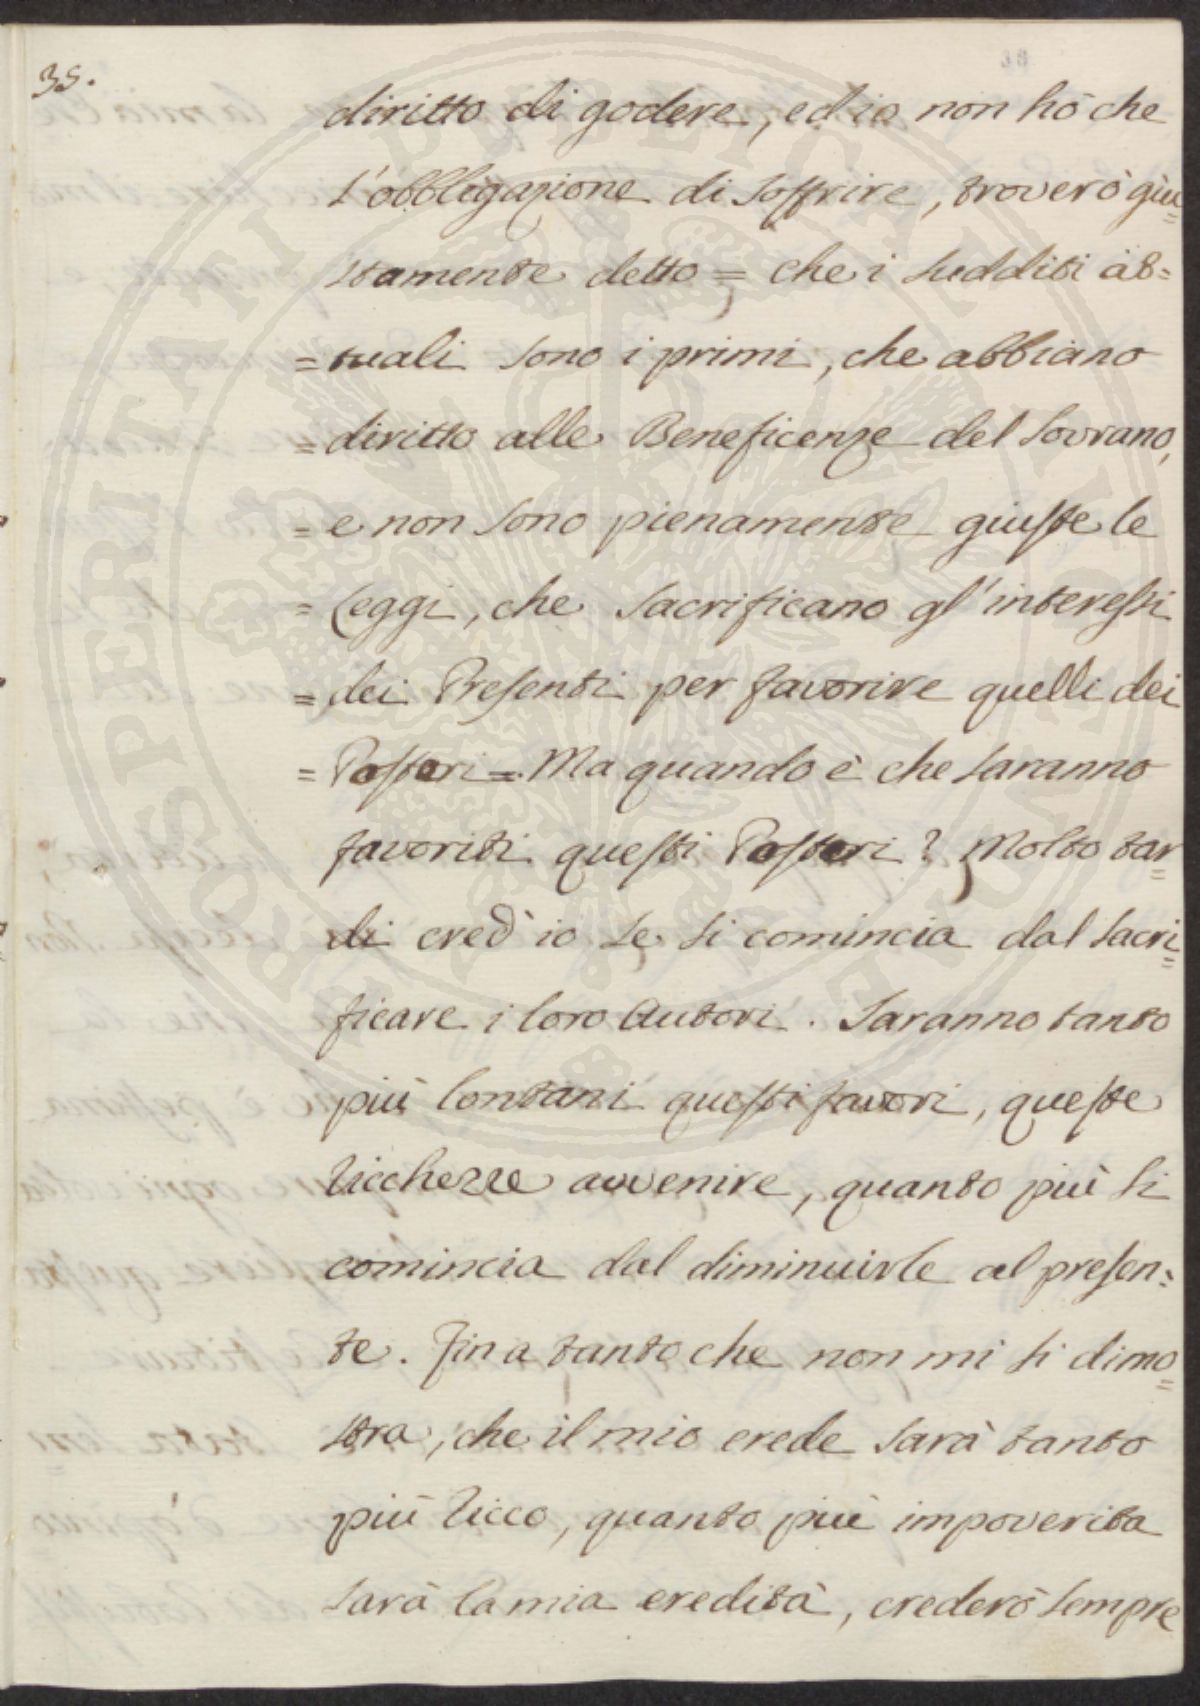 35.
diritto di godere, ed io non hò che
l'obbligazione di soffrire, troverò giu=
stamente detto = che i sudditi at=
= tuali sono i primi, che abbiano
= diritto alle Beneficenze del Sovrano,
= e non sono pienamente giuste le
= Leggi, che sacrificano gl'interessi
= dei Presenti per favorire quelli dei
= Posteri =. Ma quando è che saranno
favoriti questi Posteri? Molto tar=
di cred'io se si comincia dal sacri=
ficare i loro Autori. Saranno tanto
più lontani questi favori, queste
ricchezze avvenire, quanto più si
comincia dal diminuirle al presen=
te. Fin a tanto che non mi si dimo=
stra, che il mio erede sarà tanto
più ricco, quanto più impoverita
sarà la mia eredità, crederò sempre
PROSPERITATI PUBLICAE